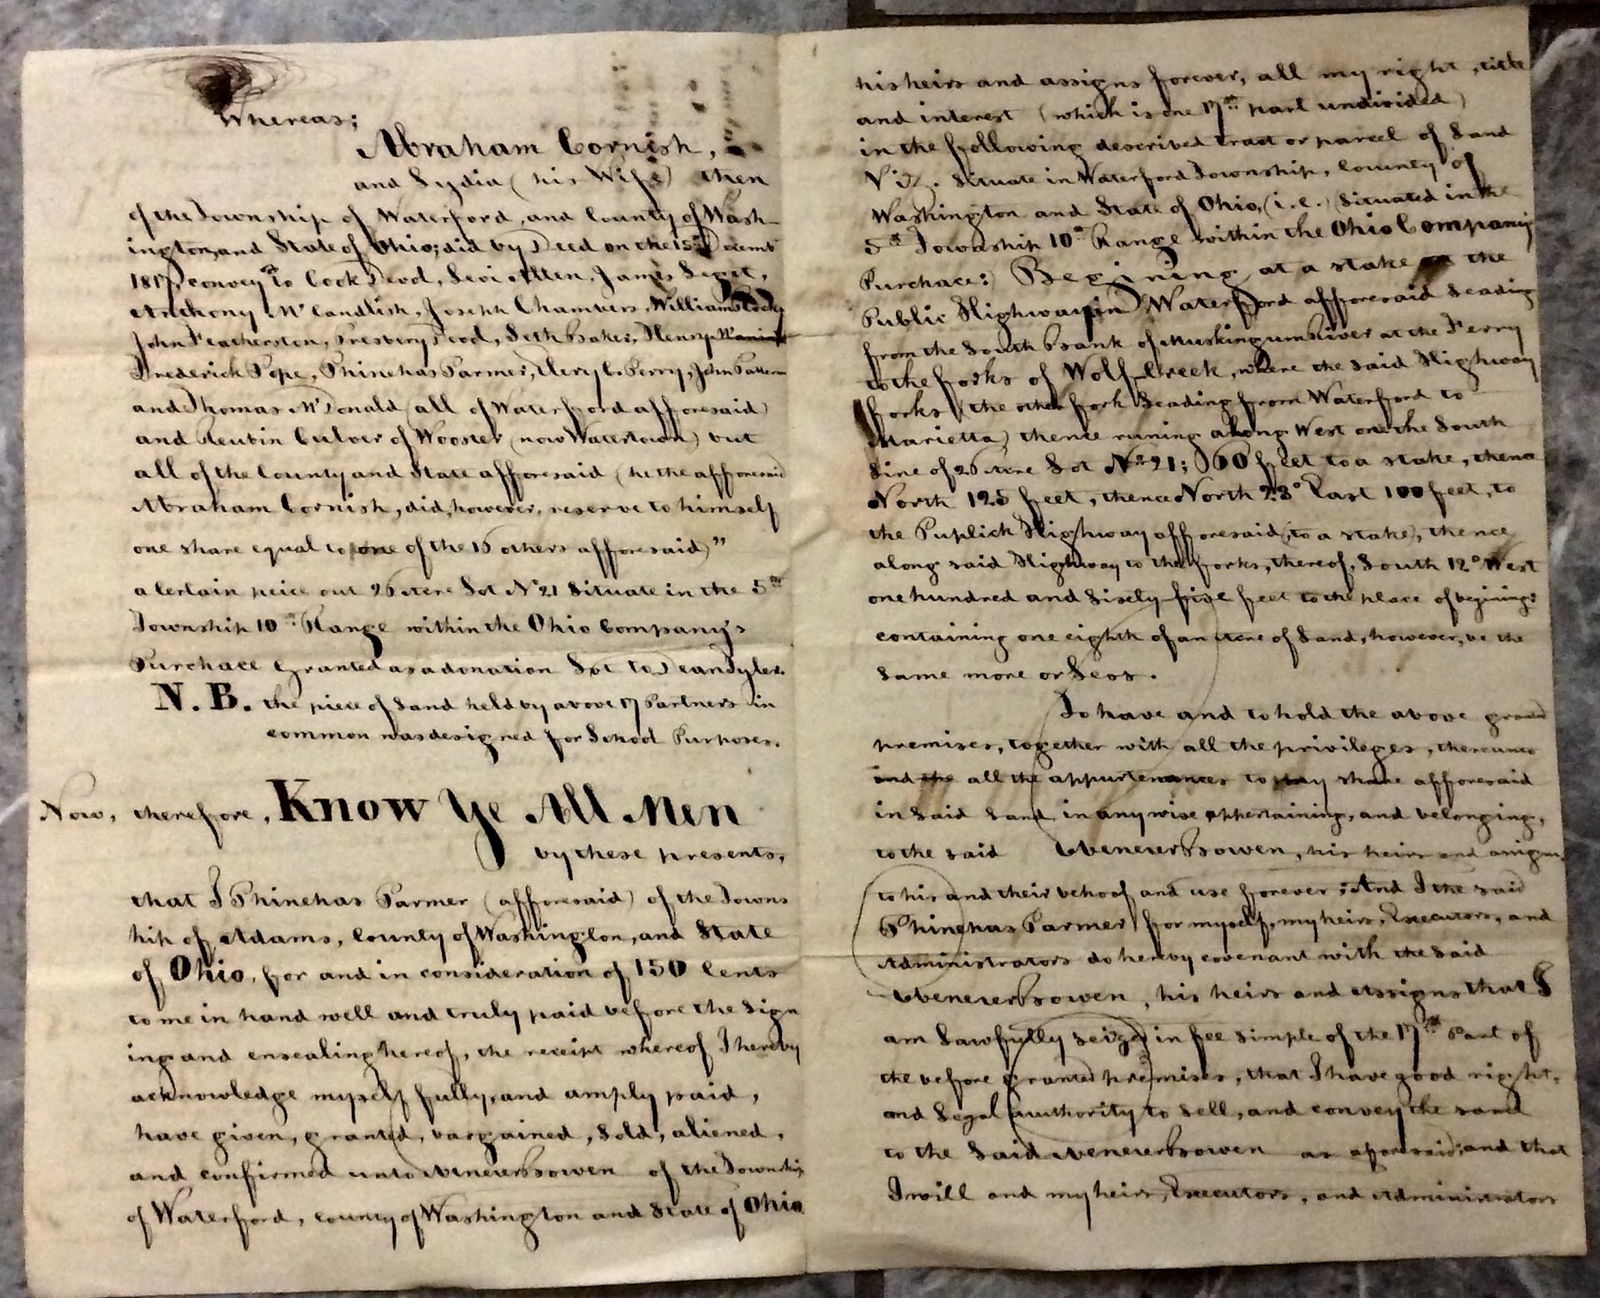 Whereas;
Abraham Cornish,
and Lydia (his Wife) then
of the Township of Waterford, and County of Wash-
ington, and State of Ohio; did by Deed on the 15th Decemb
1817, convey to Cook Devol, Levi Allen, James Leget,
Anthony McCandlish, Joseph Chambers, William
John Featherston, Presbery Devol, Seth Baker, Henry
Frederick Pope, Phinehas Farmer, Perry, John Patterson
and Thomas McDonald (all of Waterford afforesaid)
and Reubin Culver of Wooster (now Watertown) but
all of the County and State afforesaid (he the afforesaid
Abraham Cornish, did, however, reserve to himself
one share equal to one of the 16 others afforesaid)"
a Certain peice out 26 Acre Lot No 21 Situate in the 5th
Township 10th Range within the Ohio Company's
Purchace Granted as a donation Lot to Dean Tyler.
N. B. the piece of Land held by above 17 Partners in
common was designed for School Purposes.
Now, therefore, Know Ye All Men
by these presents,
that I Phinehas Farmer (afforesaid) of the Towns
hip of Adams, County of Washington, and State
of Ohio, for and in consideration of 150 Cents
to me in hand well and truly paid before the sign
ing and ensealing hereof, the receipt whereof I hereby
acknowledge myself fully, and amply paid,
have given, granted, bargained, sold, aliened,
and confirmed unto Ebenezer Bowen of the Township
of Waterford, county of Washington and State of Ohio
his heirs and assigns forever, all my right, title
and interest (which is one 17th part undivided)
in the following described tract or parcel of Land
Viz. Situate in Waterford Township, County of
Washington and State of Ohio, (i.e.) Situated in the
5th Township 10th Range within the Ohio Company
Purchace:) Begining at a stake on the
Public Highway in Waterford afforesaid leading
from the South Bank of Muskingum River at the Ferry
to the forks of Wolf Creek, where the said Highway
forks (the other fork Leading from Waterford to
Marietta) thence runing along West on the South
Line of 26 Acre Lot No 21; 60 feet to a stake, thence
North 125 feet, thence North 28° East 100 feet, to
the Puplick Highway afforesaid (to a stake), thence
along said Highway to the forks, thereof, South 12° West
one hundred and Sixty five feet to the place of begining:
containing one eighth of an Acre of Land, however, be the
same more or Less.
To have and to hold the above
premises, together with all the privileges, thereunto
and the all the appurtenances to my share afforesaid
in said Land, in any wise appertaining, and belonging,
to the said Ebenezer Bowen, his heirs and assigns,
to his and their behoof and use forever; And I the said
Phinehas Farmer, for myself, my heirs, Executors, and
Administrators do hereby covenant with the said
Ebenezer Bowen, his heirs and assigns that I
am Lawfully seized in fee simple of the 17th Part of
the before granted premises, that I have good right,
and Legal authority to sell, and convey the same
to the said Ebenezer Bowen as aforesaid; and that
I will and my heirs, Executors, and Administrators